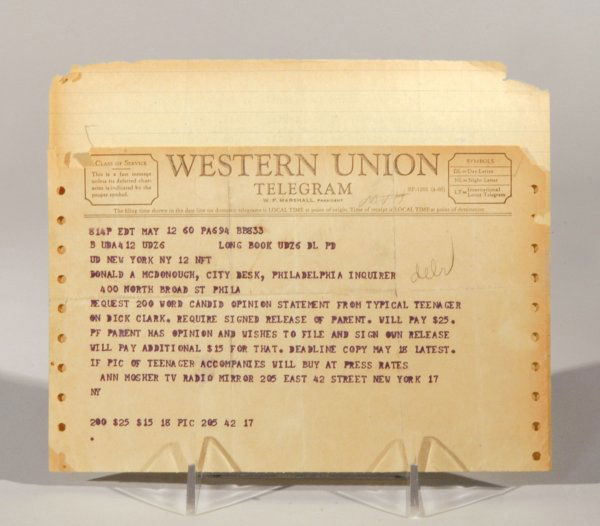 CLASS OF SERVICE
This is a fast message
unless its deferred char-
acter is indicated by the
proper symbol.
WESTERN UNION
TELEGRAM
W. P. MARSHALL, PRESIDENT
SYMBOLS
DL = Day Letter
NL = Night Letter
LT = International Letter Telegram
The filing time shown in the date line on domestic telegrams is LOCAL TIME at point of origin. Time of receipt is LOCAL TIME at point of destination
814P EDT MAY 12 60 PA694 BP833
B UDA412 UDZ6 LONG BOOK UDZ6 DL PD
UD NEW YORK NY 12 NFT
DONALD A MCDONOUGH, CITY DESK, PHILADELPHIA INQUIRER
400 NORTH BROAD ST PHILA
REQUEST 200 WORD CANDID OPINION STATEMENT FROM TYPICAL TEENAGER
ON DICK CLARK. REQUIRE SIGNED RELEASE OF PARENT. WILL PAY $25.
PF PARENT HAS OPINION AND WISHES TO FILE AND SIGN OWN RELEASE
WILL PAY ADDITIONAL $15 FOR THAT. DEADLINE COPY MAY 18 LATEST.
IF PIC OF TEENAGER ACCOMPANIES WILL BUY AT PRESS RATES
ANN MOSHER TV RADIO MIRROR 205 EAST 42 STREET NEW YORK 17
NY
200 $25 $15 18 PIC 205 42 17